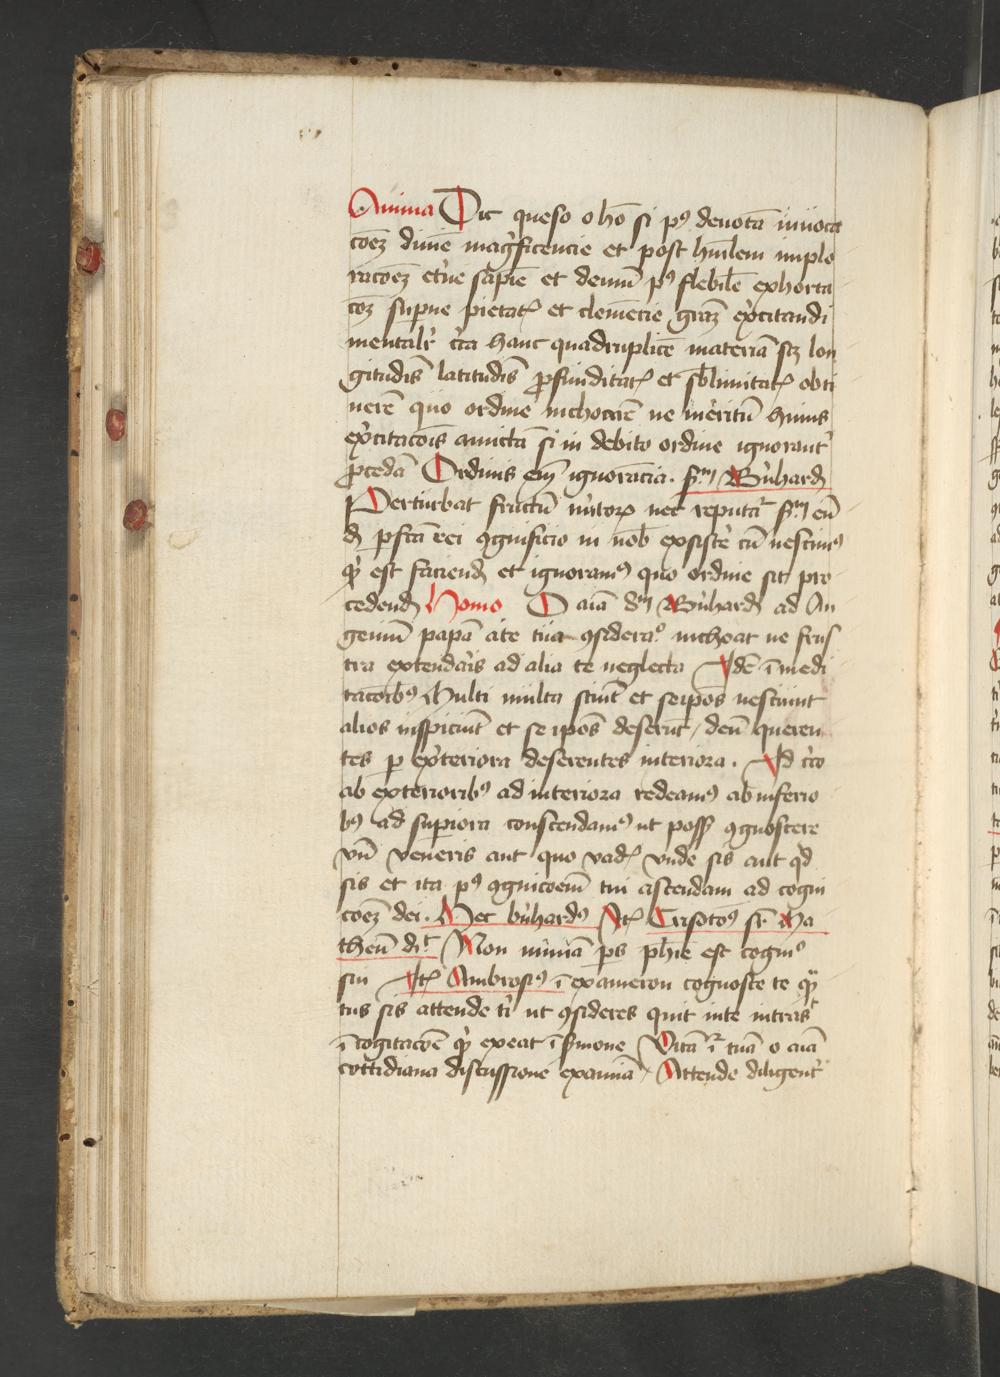 Anima Dic queso o hō si pꝰ deuotā inuoca
coēz diuīe magͥficencie et post hūilem implo
racoēz etͥne sapīe et demū pꝰ flebilē exhorta
coz supͥne pietatꝭ et clemēcie grāz exͥcitandi
mentalrͥ cͥca hanc quadruplicē materiā scz lon
gitudīs latitudīs ꝓfunditatꝭ et sblimitatꝭ obti
nerē quo ordine inchoarē ne meritū huius
exͥcitacoīs amictā si in debito ordine ignorantͥ
ꝓcedā Ordinis em̄ ignorācia. sᵐ Bͥnhardꝰ
Perturbat fructū mͥtoꝝ nec reputatͬ sᵐ eū
ꝑfcā rei ꝯgnisicio in nob̄ exsistͥe cū nescimꝰ
qͥ est faciend et ignoramꝰ quo ordine sit pro
cedend Homo O aīa dm̄ Bͥnhardꝰ ad Eu
geniū papā a te tua ꝯsideraᵒ inchoat ne frus
tra extendarͥs ad alia te neglecta Idē ī medi
tacoibꝰ Multi multa sciūt et seipos nesciunt
alios inspiciūt et se ipos deserūt / deū queren
tes ꝑ exͥteriora deserentes interiora. Id cͥco
ab exterioribꝰ ad interiora redeamꝰ ab inferio
bꝰ ad supiora conscendamꝰ ut possꝭ ꝯgnoscere
vn̄ veneris aut quo vadꝭ vnde sis aut qd
sis et ita pꝰ ꝯgnicoem̄ tui ascendam ad cogni
coēz dei. Hec bͥnhardꝰ Itꝭ Crisotoꝰ sr̄ Ma
theū diͨ Non minīa ꝑs phīe est cognoꝰ
sui Itꝭ Ambrosiꝰ ī exameron cognosce te qͣ
tus sis attende tͥ ut ꝯsideres quit inte intrās
ī cogitacoē qͥ exeat ī sͥmone Vitā ī tuā o aīa
cottidiana discussione examinā / Attende diligentͥ